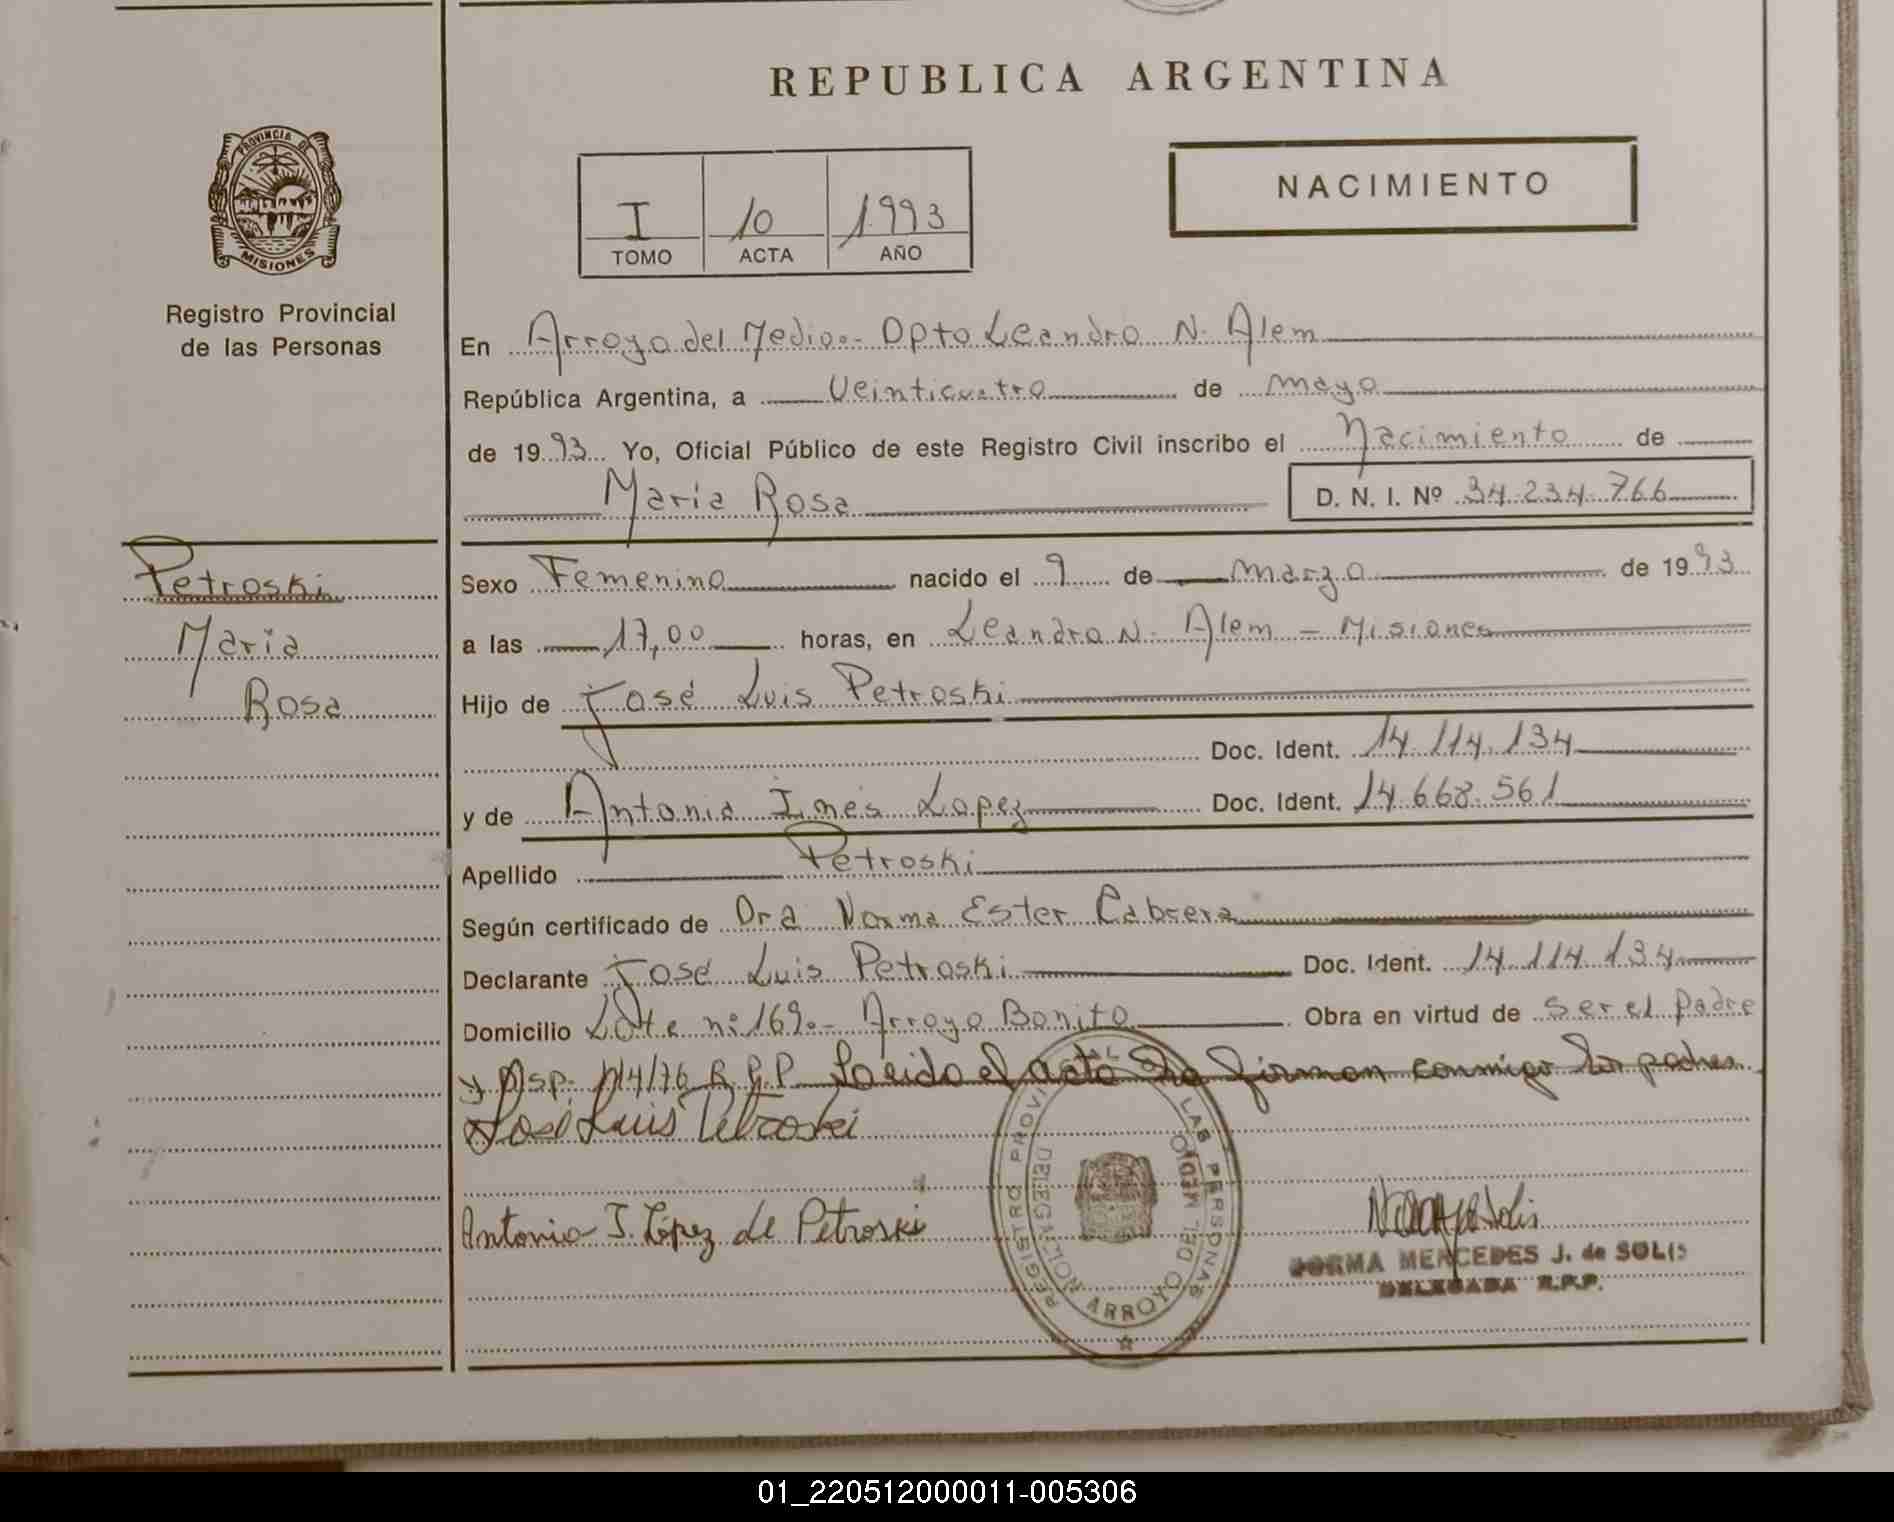 REPUBLICA ARGENTINA
PROVINCIA DE
MISIONES
Registro Provincial
de las Personas
I 10 1993
TOMO ACTA AÑO
NACIMIENTO
En Arroyo del Medio.- Dpto Leandro N. Alem
República Argentina, a Veinticuatro de mayo
de 1993 Yo, Oficial Público de este Registro Civil inscribo el Nacimiento de
Maria Rosa D. N. I. Nº 34.234.766
Petroski
Maria
Rosa
Sexo Femenino nacido el 9 de marzo de 1993
a las 17,00 horas, en Leandro N. Alem - Misiones
Hijo de José Luis Petroski
Doc. Ident. 14.114.134
y de Antonia Inés Lopez Doc. Ident. 14.668.561
Apellido Petroski
Según certificado de Dra Norma Ester Cabrera
Declarante José Luis Petroski Doc. Ident. 14.114.134
Domicilio Lote nº 169.- Arroyo Bonito Obra en virtud de ser el padre
y Disp. 14/76 R.P.P. Leido el acta la firman conmigo los padres
José Luis Petroski
Antonia I. López de Petroski
REGISTRO PROVINCIAL DE LAS PERSONAS
DELEGACION ARROYO DEL MEDIO
NORMA MERCEDES J. de SOLIS
DELEGADA R.P.P.
01_220512000011-005306